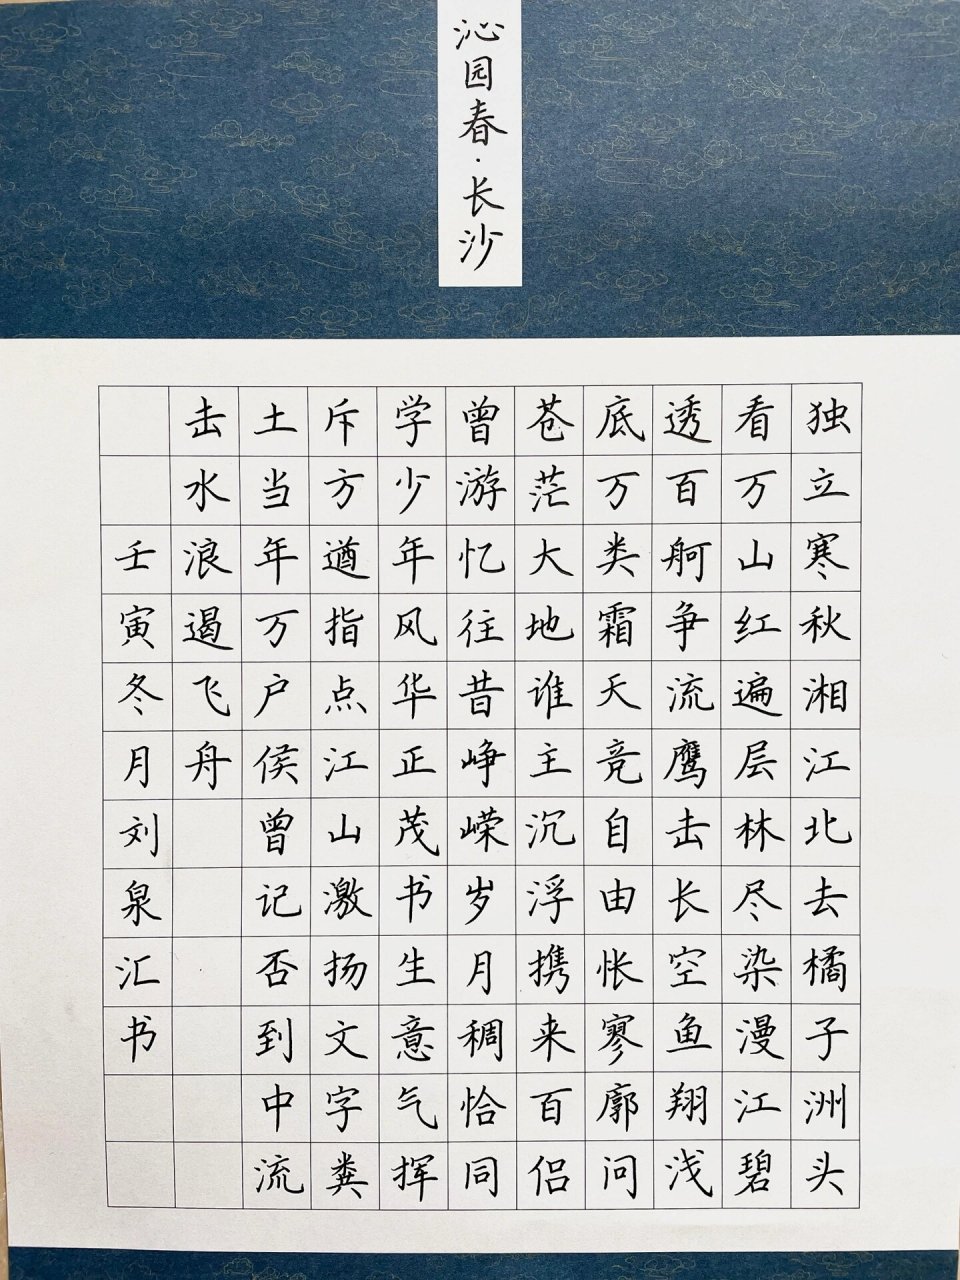 沁园春·长沙
独立寒秋湘江北去橘子洲头
看万山红遍层林尽染漫江碧
透百舸争流鹰击长空鱼翔浅
底万类霜天竞自由怅寥廓问
苍茫大地谁主沉浮携来百侣
曾游忆往昔峥嵘岁月稠恰同
学少年风华正茂书生意气挥
斥方遒指点江山激扬文字粪
土当年万户侯曾记否到中流
击水浪遏飞舟
壬寅冬月刘泉汇书